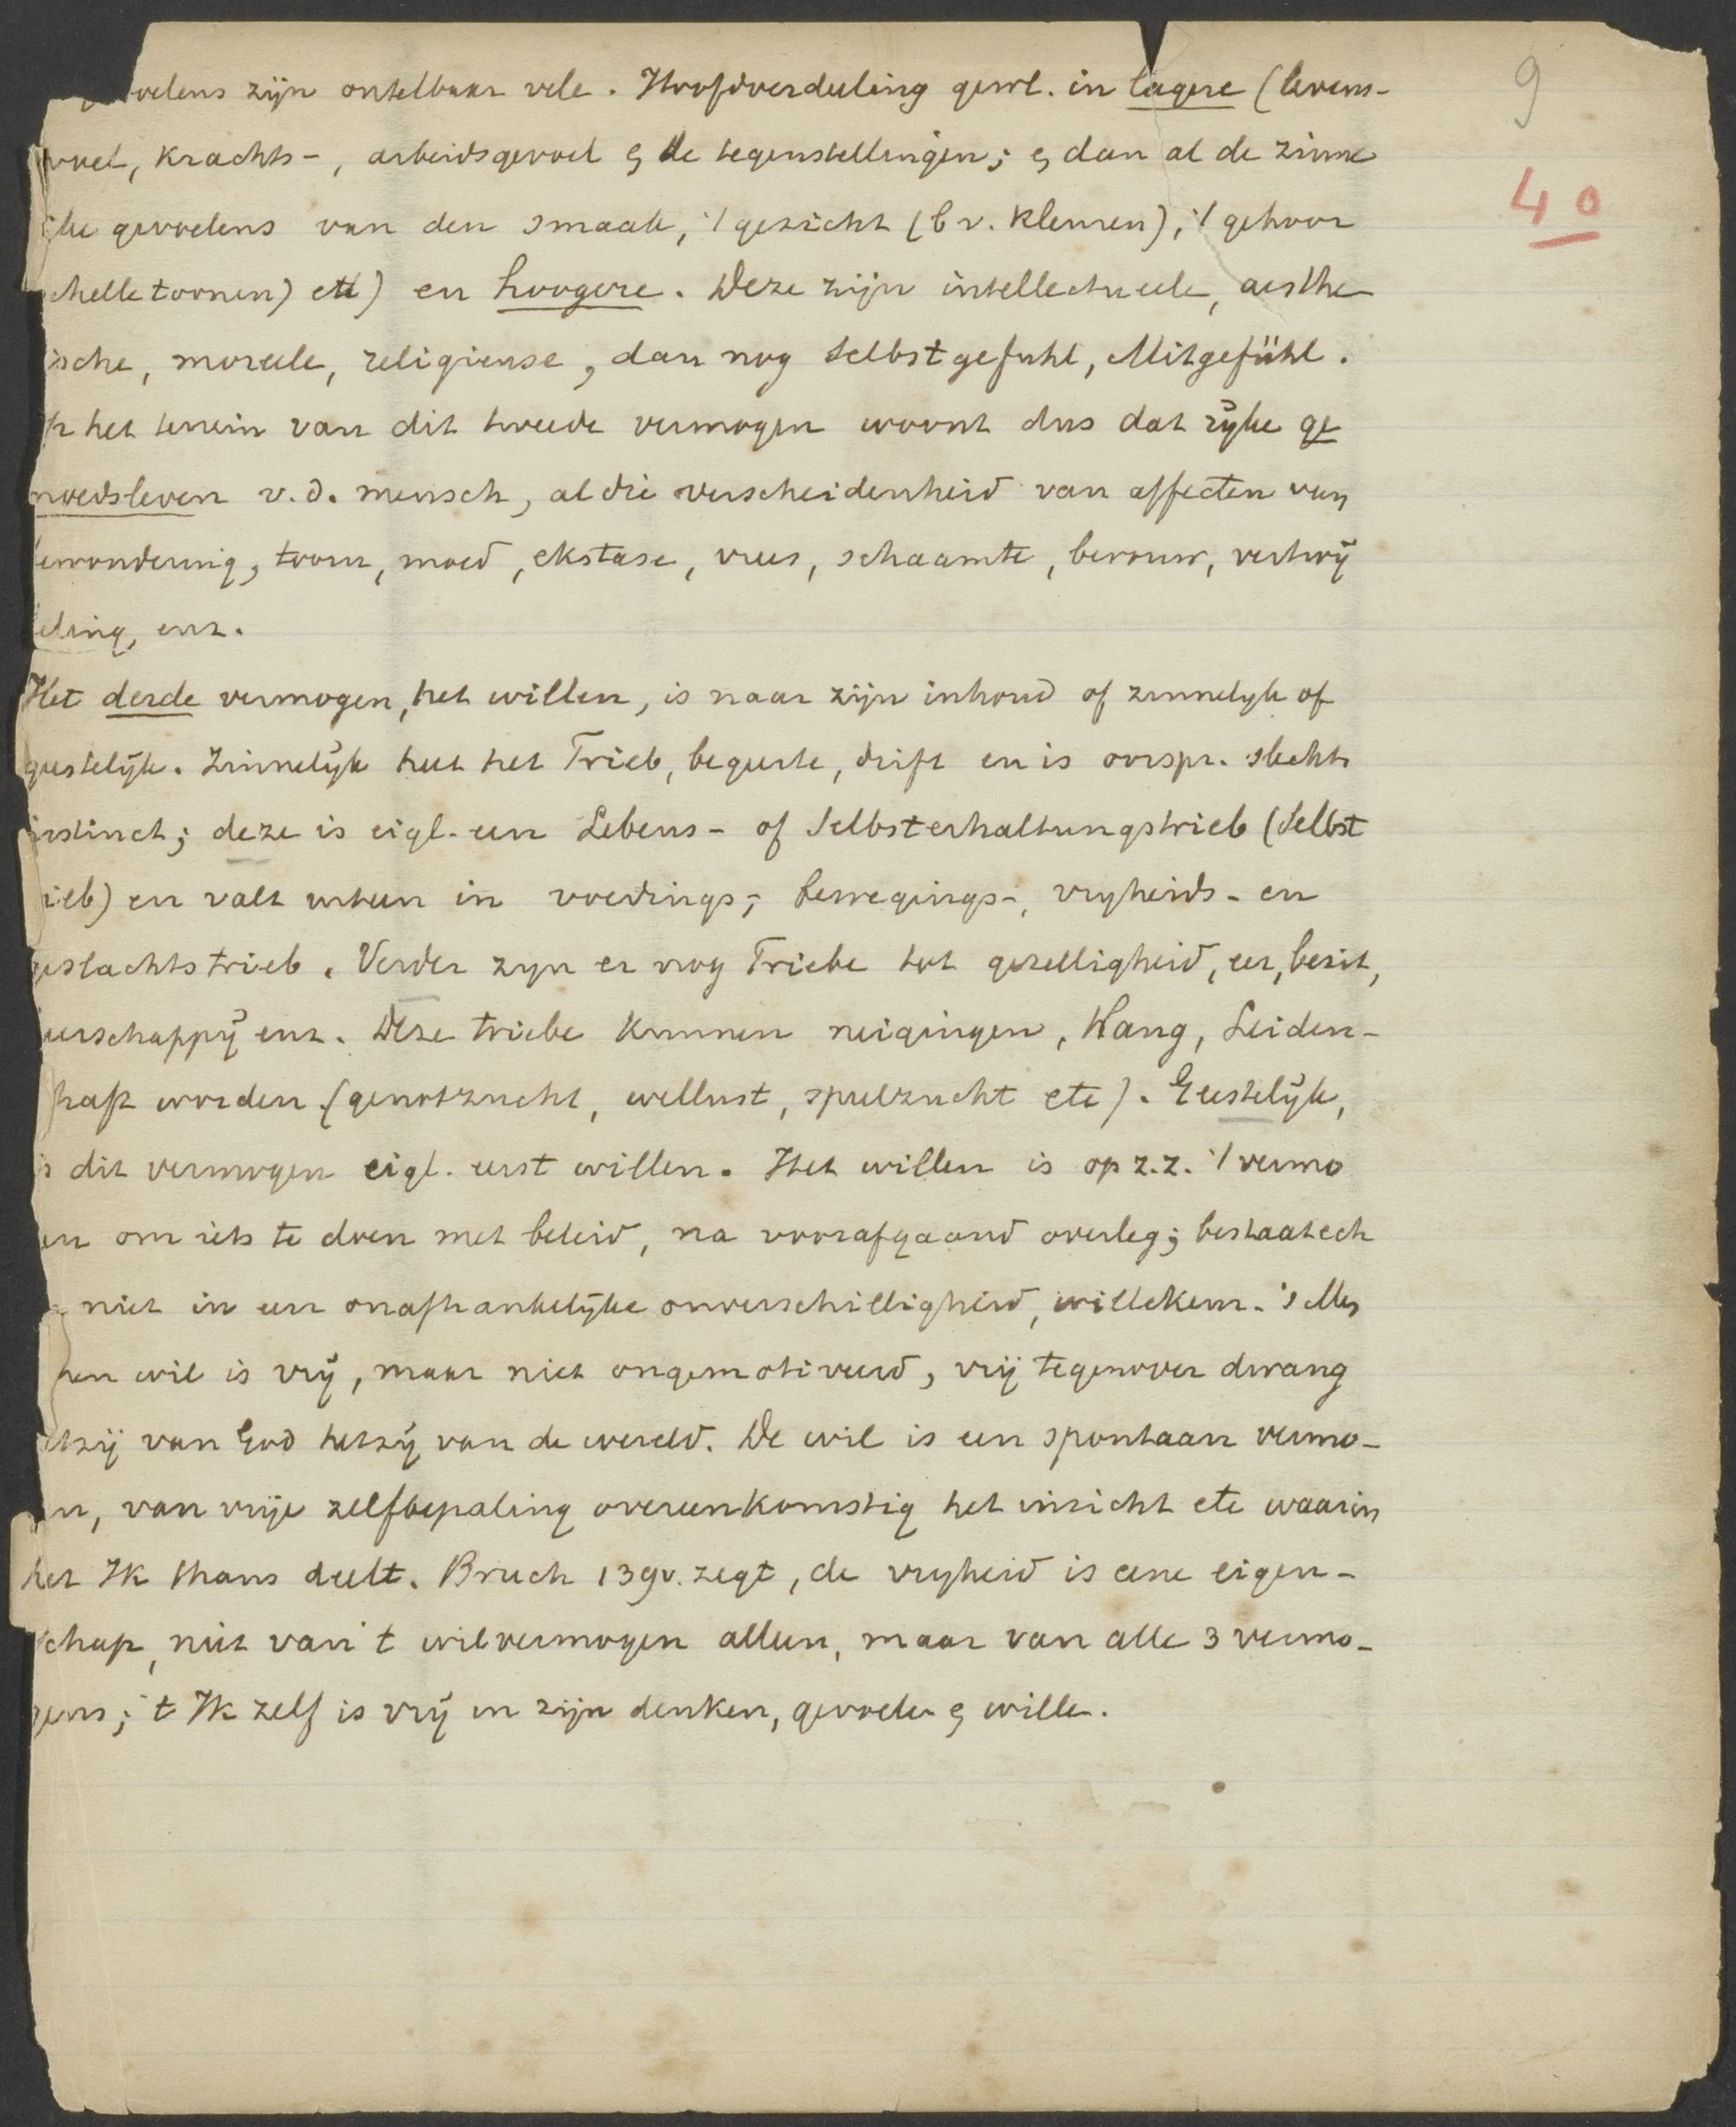 9
40
voelens zijn ontelbaar vele. Hoofdverdeeling gew. in lagere (levens-
voel, krachts-, arbeidsgevoel & de tegenstellingen; & dan al de zinne
ke gevoelens van den smaak, 't gezicht (bv. kleuren), 't gehoor
chelle toonen) etc) en hoogere. Deze zijn intellectueele, aesthe
ische, moreele, religieuse, dan nog Selbstgefuhl, Mitgefühl.
p het terrein van dit tweede vermogen woont dus dat rijke ge
moedsleven v.d. mensch, al die verscheidenheid van affecten van
ewondering, toorn, moed, ekstase, vrees, schaamte, berouw, vertwij
eling, enz.
Het derde vermogen, het willen, is naar zijn inhoud of zinnelijk of
geestelijk. Zinnelijk heet het Trieb, begeerte, drift en is oorspr. slechts
instinct; deze is eigl. een Lebens- of Selbsterhaltungstrieb (Selbst
ieb) en valt uiteen in voedings-, bewegings-, vrijheids- en
eslachtstrieb. Verder zijn er nog Triebe tot gezelligheid, eer, bezit,
eerschappij enz. Deze triebe kunnen neigingen, Hang, Leiden-
haft worden (genotzucht, wellust, speelzucht etc). Geestelijk,
s dit vermogen eigl. eerst willen. Het willen is op z.z. 't vermo
en om iets te doen met beleid, na voorafgaand overleg; bestaat ech
niet in een onafhankelijke onverschilligheid, willekeur. 's Men
hen wil is vrij, maar niet ongemotiveerd, vrij tegenover dwang
etzij van God hetzij van de wereld. De wil is een spontaan vermo-
en, van vrije zelfbepaling overeenkomstig het inzicht etc waarin
het Ik thans deelt. Bruch 139v. zegt, de vrijheid is eene eigen-
schap, niet van 't wilvermogen alleen, maar van alle 3 vermo-
gens; 't Ik zelf is vrij in zijn denken, gevoelen & willen.